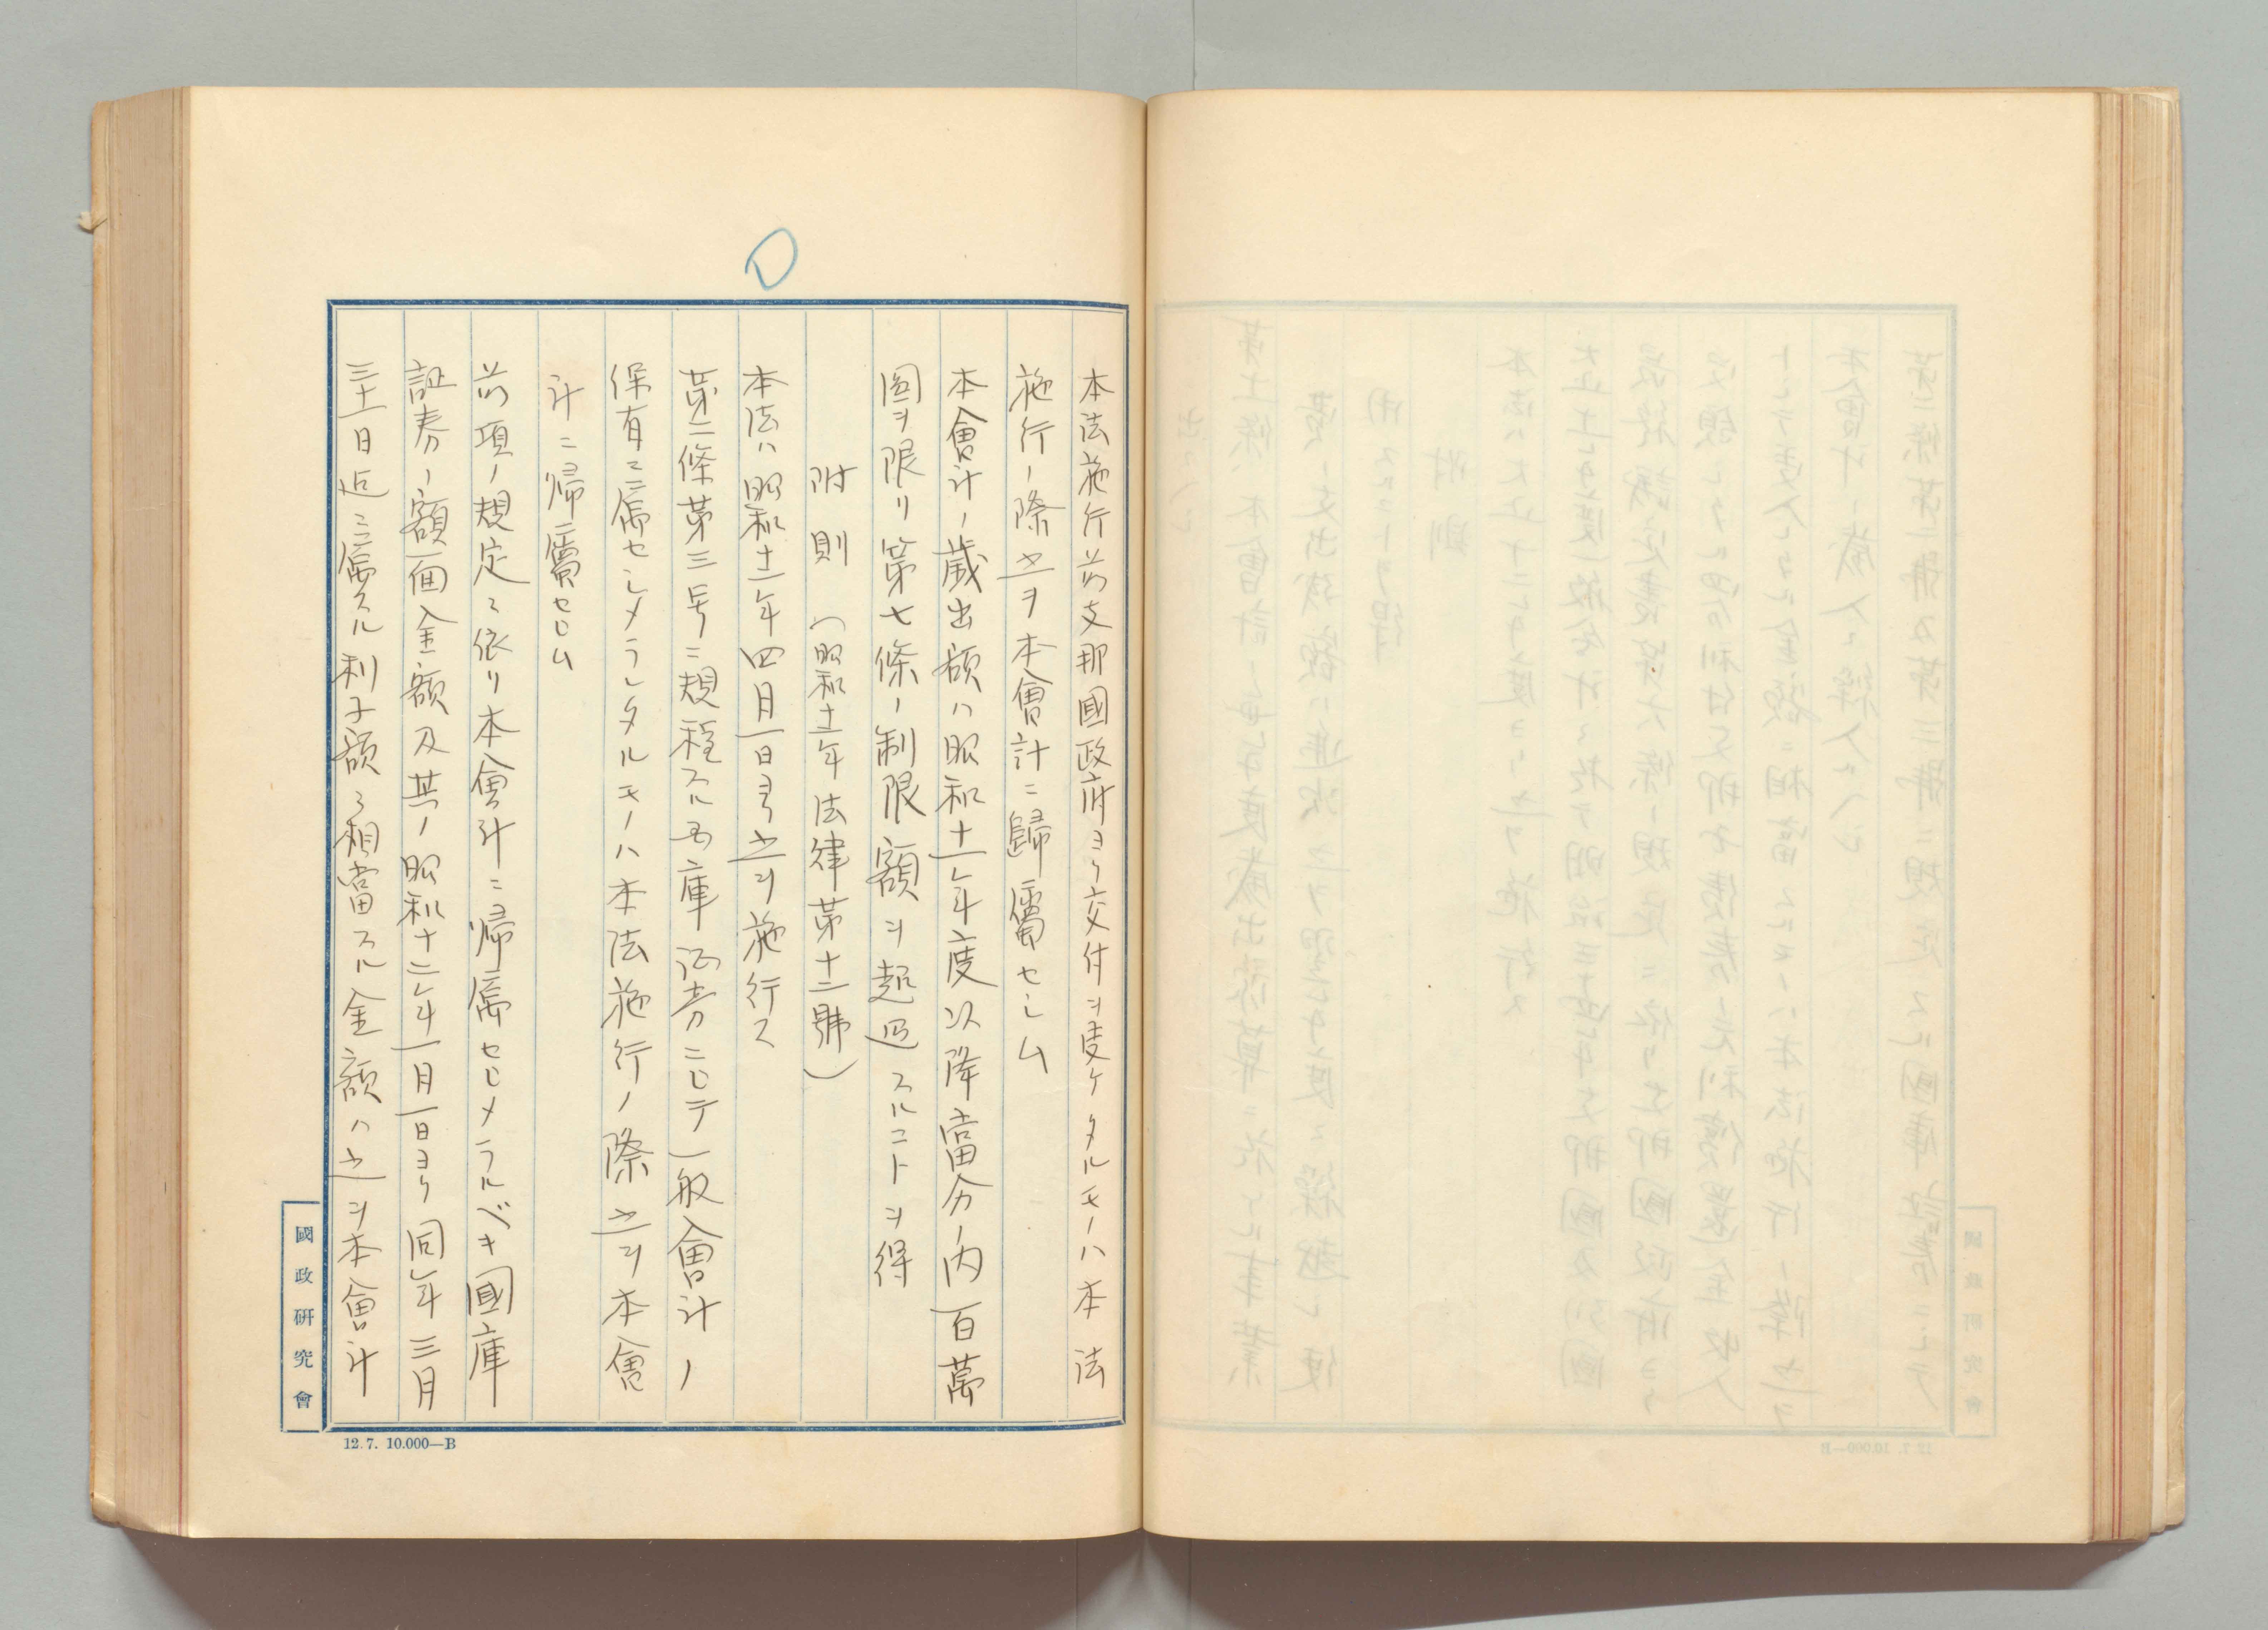 本法施行前支那國政府ヨリ交付ヲ受ケタルモノハ本法
施行ノ際之ヲ本會計ニ歸屬セシム
本會計ノ歳出額ハ昭和十一年度以降當分ノ内一百萬
圓ヲ限リ第七條ノ制限額ヲ超過スルコトヲ得
附則 (昭和十二年法律第十二號)
本法ハ昭和十二年四月一日ヨリ之ヲ施行ス
第二條第三号ニ規程スル国庫証券ニシテ一般會計ノ
保有ニ属セシメラレタルモノハ本法施行ノ際之ヲ本會
計ニ帰属セシム
前項ノ規定ニ依リ本會計ニ帰属セシメラルベキ國庫
証券ノ額面金額及其ノ昭和十二年一月一日ヨリ同年三月
三十一日迄ニ属スル利子額ニ相當スル金額ハ之ヲ本會計
國政研究會
12.7. 10.000—B